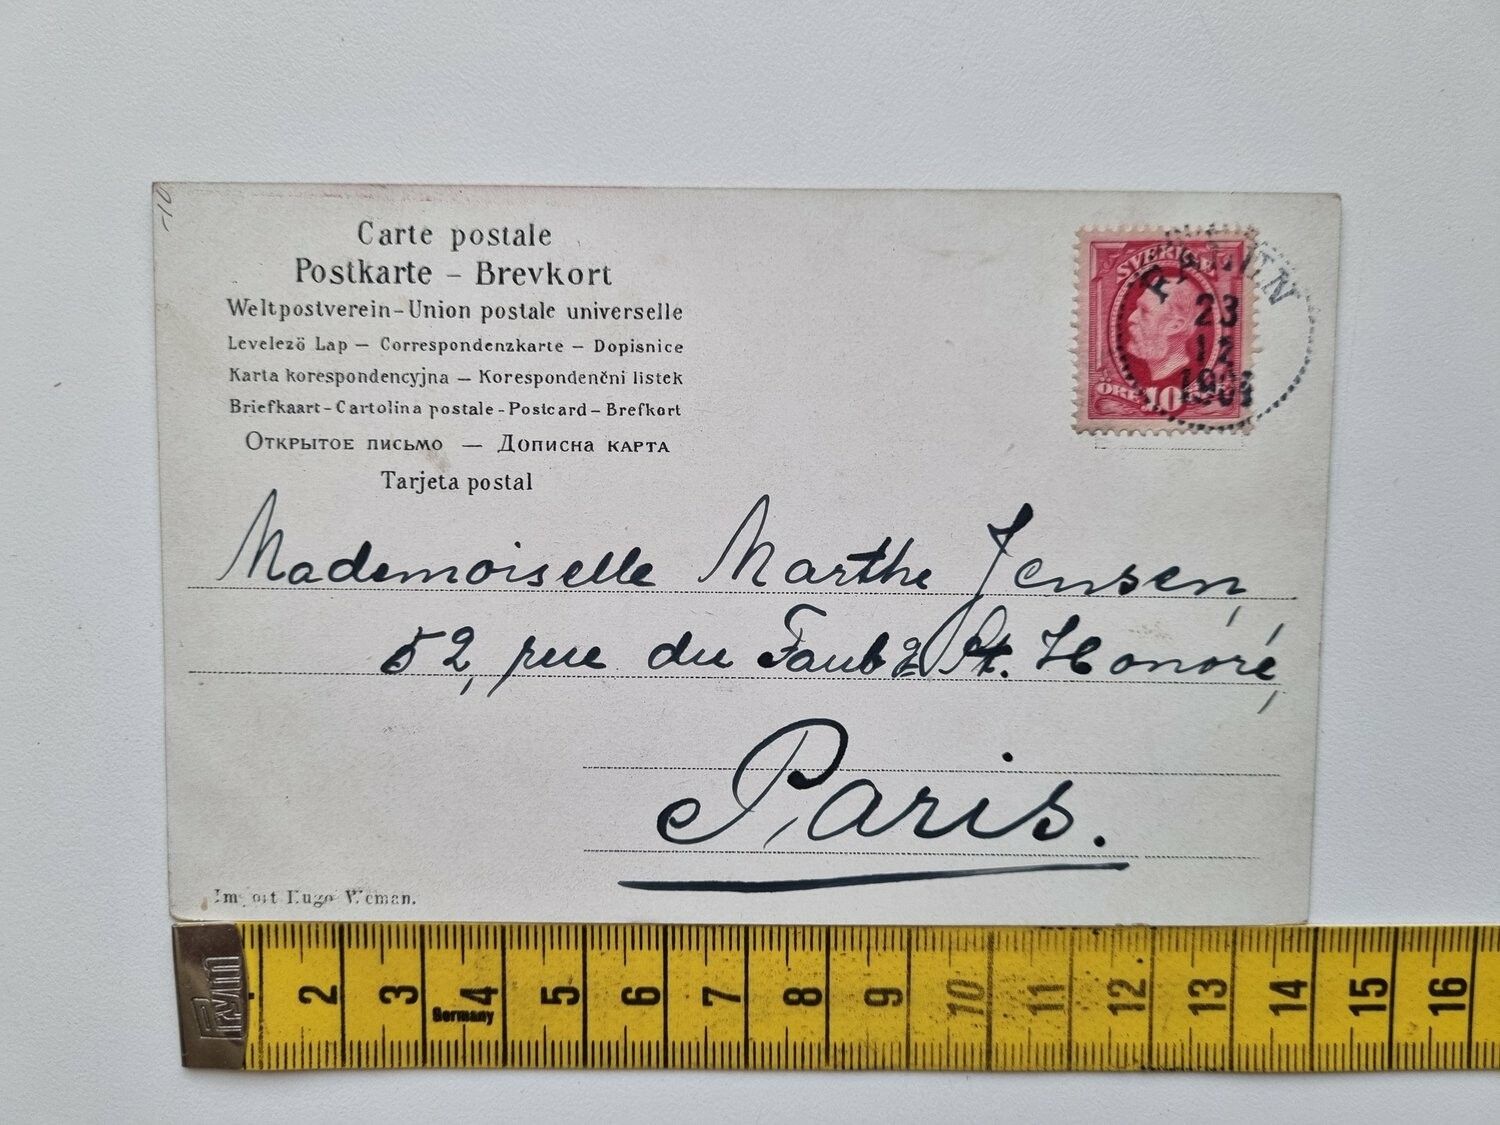 -10
Carte postale
Postkarte – Brevkort
Weltpostverein – Union postale universelle
Levelező Lap – Correspondenzkarte – Dopisnice
Karta korespondencyjna – Korespondenčni listek
Briefkaart – Cartolina postale – Postcard – Brefkort
Открытое письмо — Дописна карта
Tarjeta postal
SVERIGE
23
12
ÖRE 10
Mademoiselle Marthe Jensen,
52, rue du Faubg St. Honoré,
Paris.
Import Hugo
Prym
2 3 4 5 6 7 8 9 10 11 12 13 14 15 16
Germany